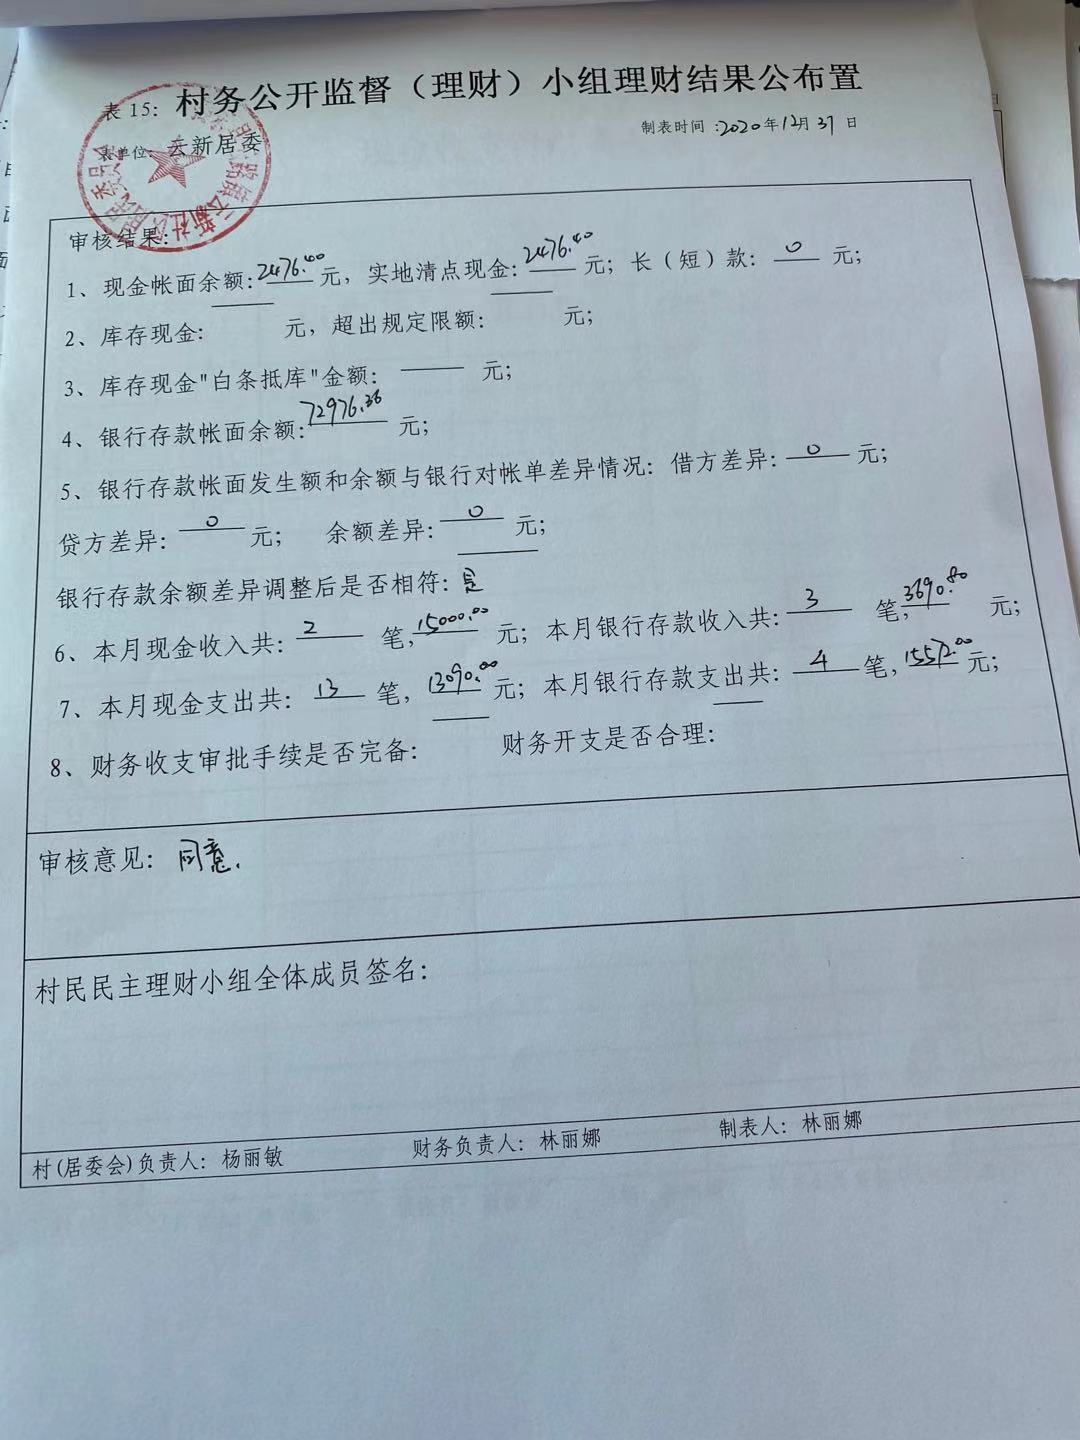 表 15：村务公开监督（理财）小组理财结果公布置
制表时间：2020年12月31日
表单位：云新居委
审核结果：
1、现金帐面余额：2476.40元，实地清点现金：2476.40元；长（短）款：0元；
2、库存现金：元，超出规定限额：元；
3、库存现金"白条抵库"金额：元；
4、银行存款帐面余额：72976.36元；
5、银行存款帐面发生额和余额与银行对帐单差异情况：借方差异：0元；
贷方差异：0元；余额差异：0元；
银行存款余额差异调整后是否相符：是
6、本月现金收入共：2笔，15000.00元；本月银行存款收入共：3笔，3690.80元；
7、本月现金支出共：13笔，13090.00元；本月银行存款支出共：4笔，15572.00元；
8、财务收支审批手续是否完备：财务开支是否合理：
审核意见：同意.
村民民主理财小组全体成员签名：
村(居委会)负责人：杨丽敏 财务负责人：林丽娜 制表人：林丽娜